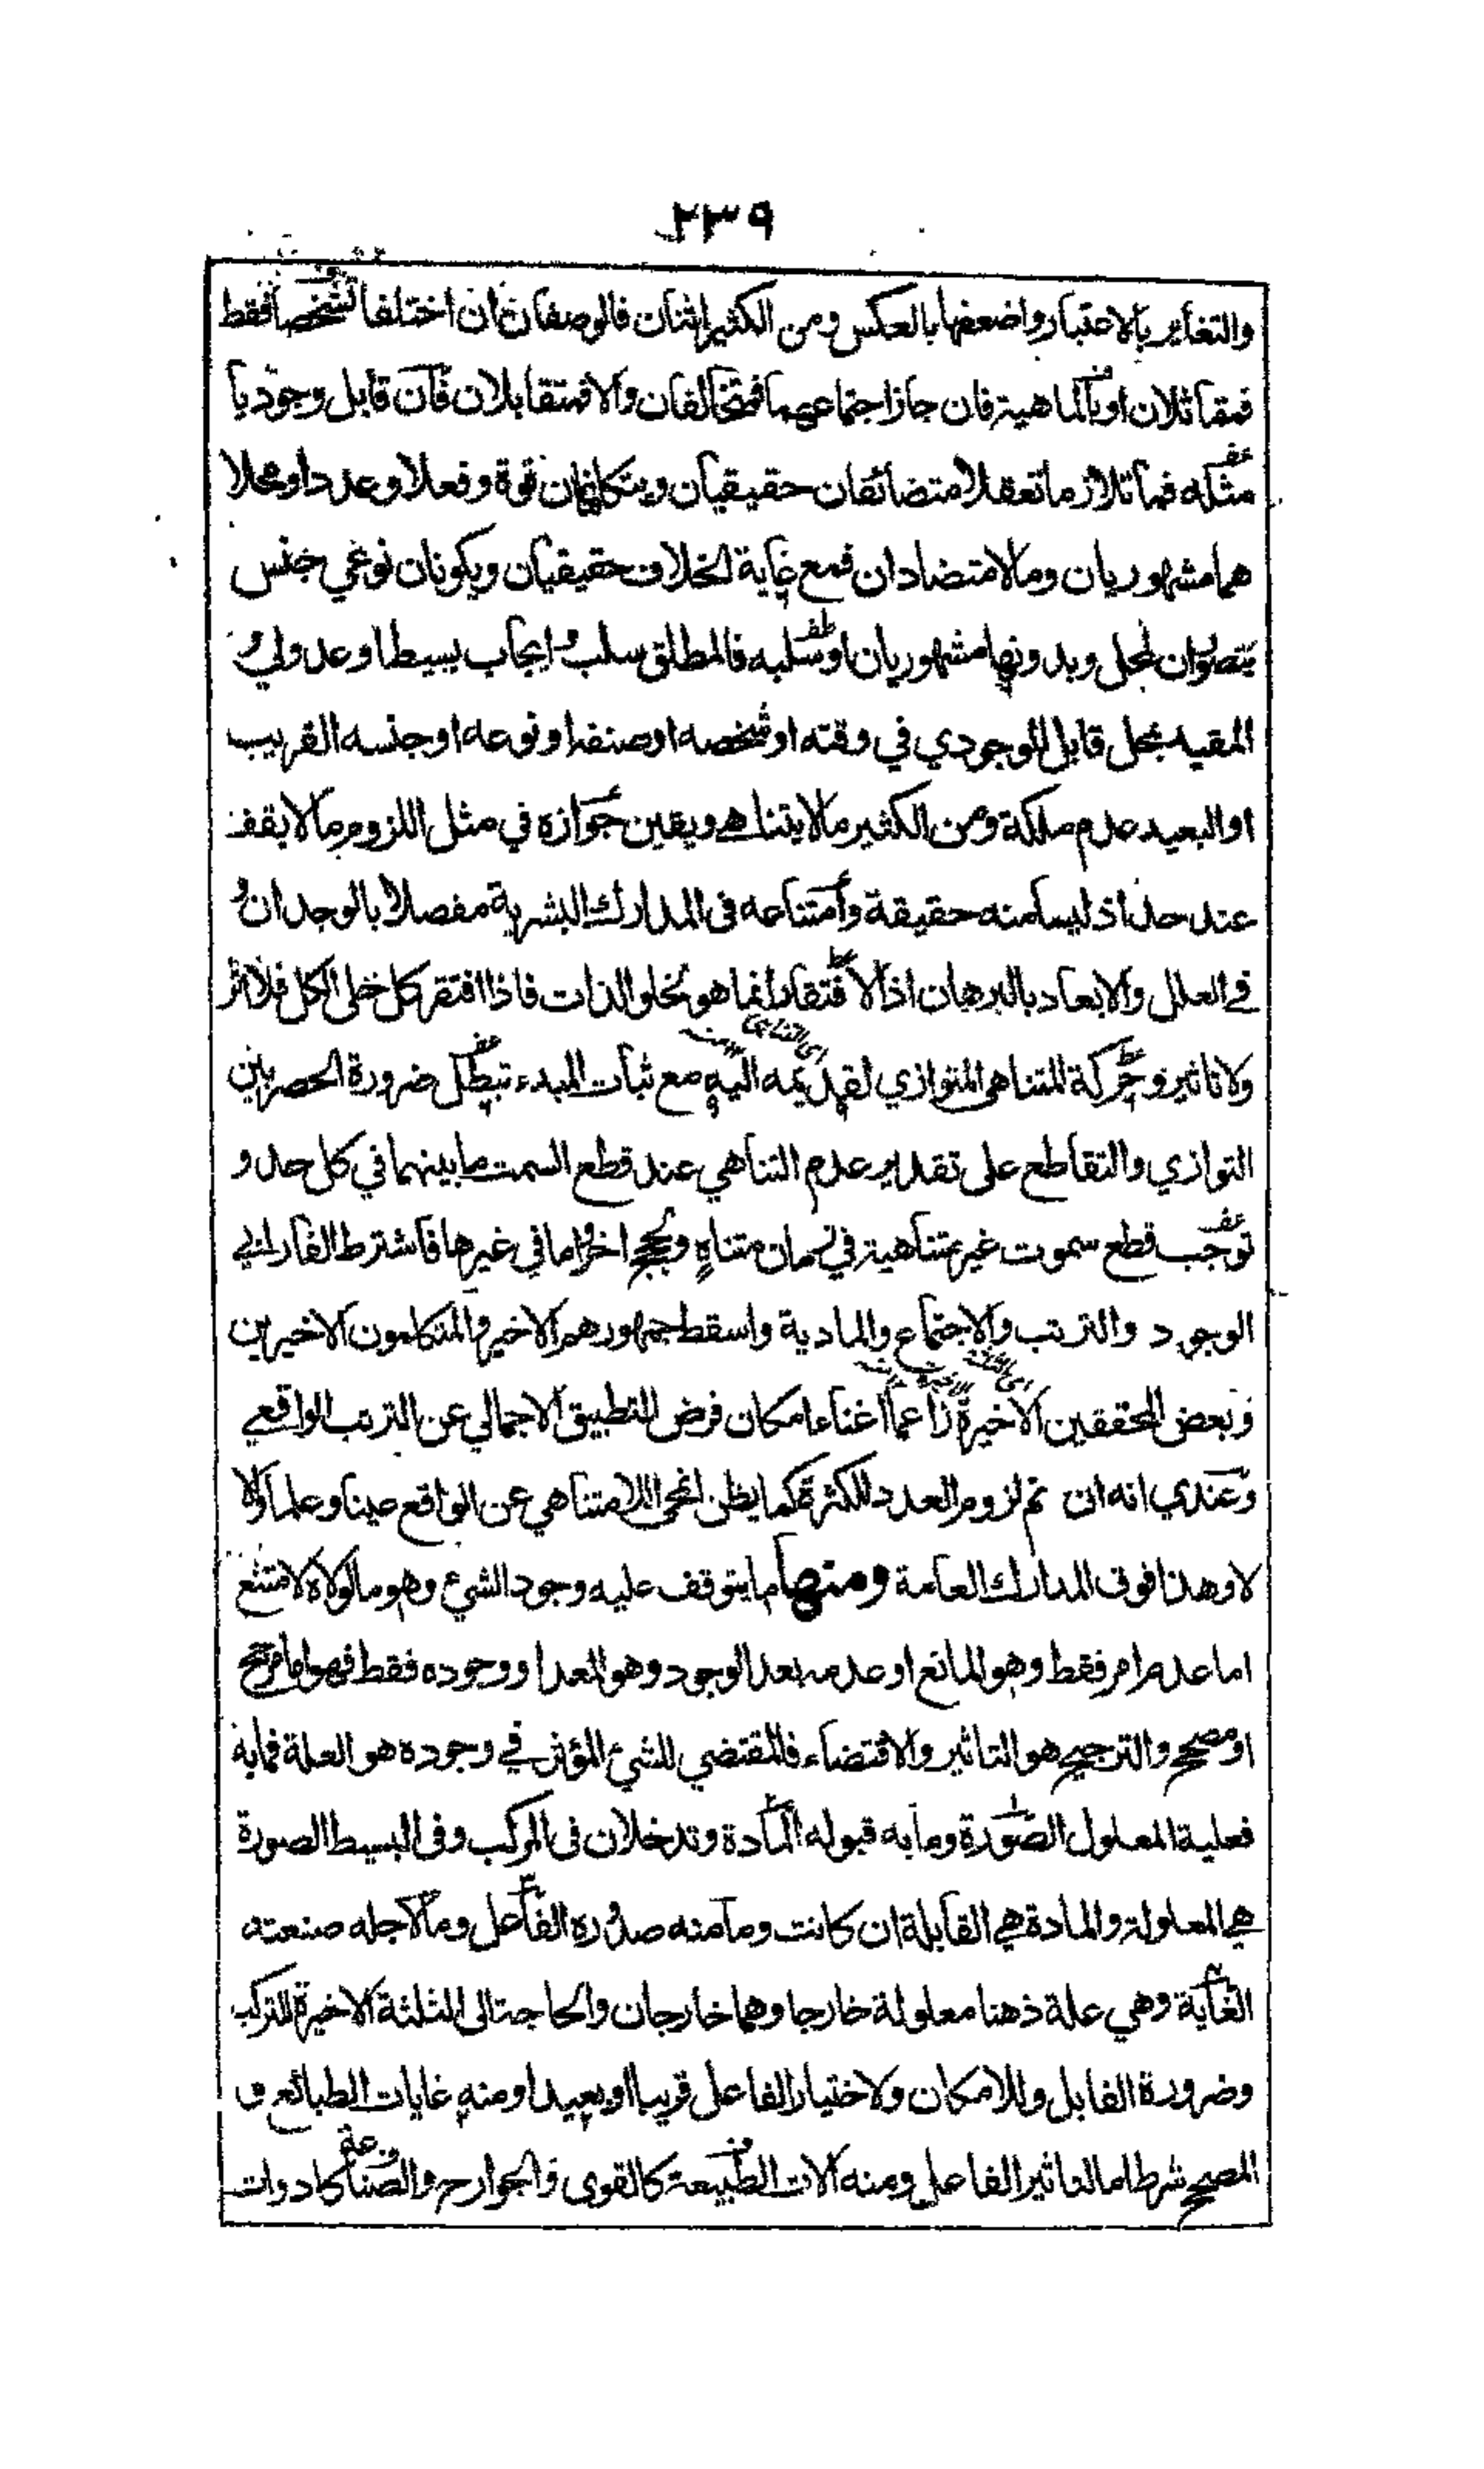 ٢٣٩
والتغاير بالاعتبار واضعفها بالعكس ومن الكثير اثنان فالوصفان ان اختلفا تشخصا فقط
فمتماثلان او بالماهية فان جاز اجتماعهما فمتخالفان والا فمتقابلان فان قابل وجوديا
مثله فما تلازما تعقلا متضائفان حقيقيان ويتكافئان قوة وفعلا وعددا ومحلا
هما مشهوريان وما لا متضادان فمع غاية الخلاف حقيقيان ويكونان نوعي جنس
لمحل وبدونها مشهوريان او سلبه فالمطلق سلب وايجاب بسيطا وعدولي و
المقيد بمحل قابل للوجودي في وقته او شخصه او صنفه او نوعه او جنسه القريب
او البعيد عدم ملكة ومن الكثير ما لا يتناهي ويقين جوازه في مثل اللزوم ما لا يقف
عند حد اذ ليسا منه حقيقة وامتناعه في المدارك البشرية مفصلا بالوجدان و
في العلل والابعاد بالبرهان اذ الافتقار انما هو لخلو الذات فاذا افتقر كل خلى الكل فلا اثر
ولا تاثير وحركة المتناهي المتوازي اليه مع ثبات المبدء تبطل ضرورة الحصر بين
التوازي والتقاطع على تقدير عدم التناهي عند قطع السمت ما بينهما في كل حد و
توجب قطع سموت غير متناهية في زمان متناه وبحجج اخر اما في غيرها فاشترط الفارابي
الوجود والترتب والاجتماع والمادية واسقط جمهورهم الاخير والمتكلمون الاخيرين
وبعض المحققين الاخيرة زاعما اغناء امكان فرض التطبيق الاجمالي عن الترتب الواقعي
وعندي انه ان تم لزوم العدد للكثرة كما يظن انمحى اللامتناهي عن الواقع عينا وعلما والا
لا وهذا فوق المدارك العامة ومنها ما يتوقف عليه وجود الشيء وهو ما لولاه لامتنع
اما عدم امر فقط وهو المانع او عدمه بعد الوجود وهو المعد او وجوده فقط فهو اما مرجح
او مصحح والترجيح هو التاثير والاقتضاء فالمقتضي للشيء المؤثر في وجوده هو العلة فما به
فعلية المعلول الصورة وما به قبوله المادة وتدخلان في المركب وفي البسيط الصورة
هي المعلولة والمادة هي القابلة ان كانت وما منه صدوره الفاعل وما لاجله صنعته
الغاية وهي علة ذهنا معلولة خارجا وهما خارجان والحاجة الى الثلثة الاخيرة للتركب
وضرورة القابل وللامكان ولاختيار الفاعل قريبا او بعيدا ومنه غايات الطبائع و
المصحح شرط اما لتاثير الفاعل ومنه آلات الطبيعة كالقوى والجوارح والصناعة كادوات